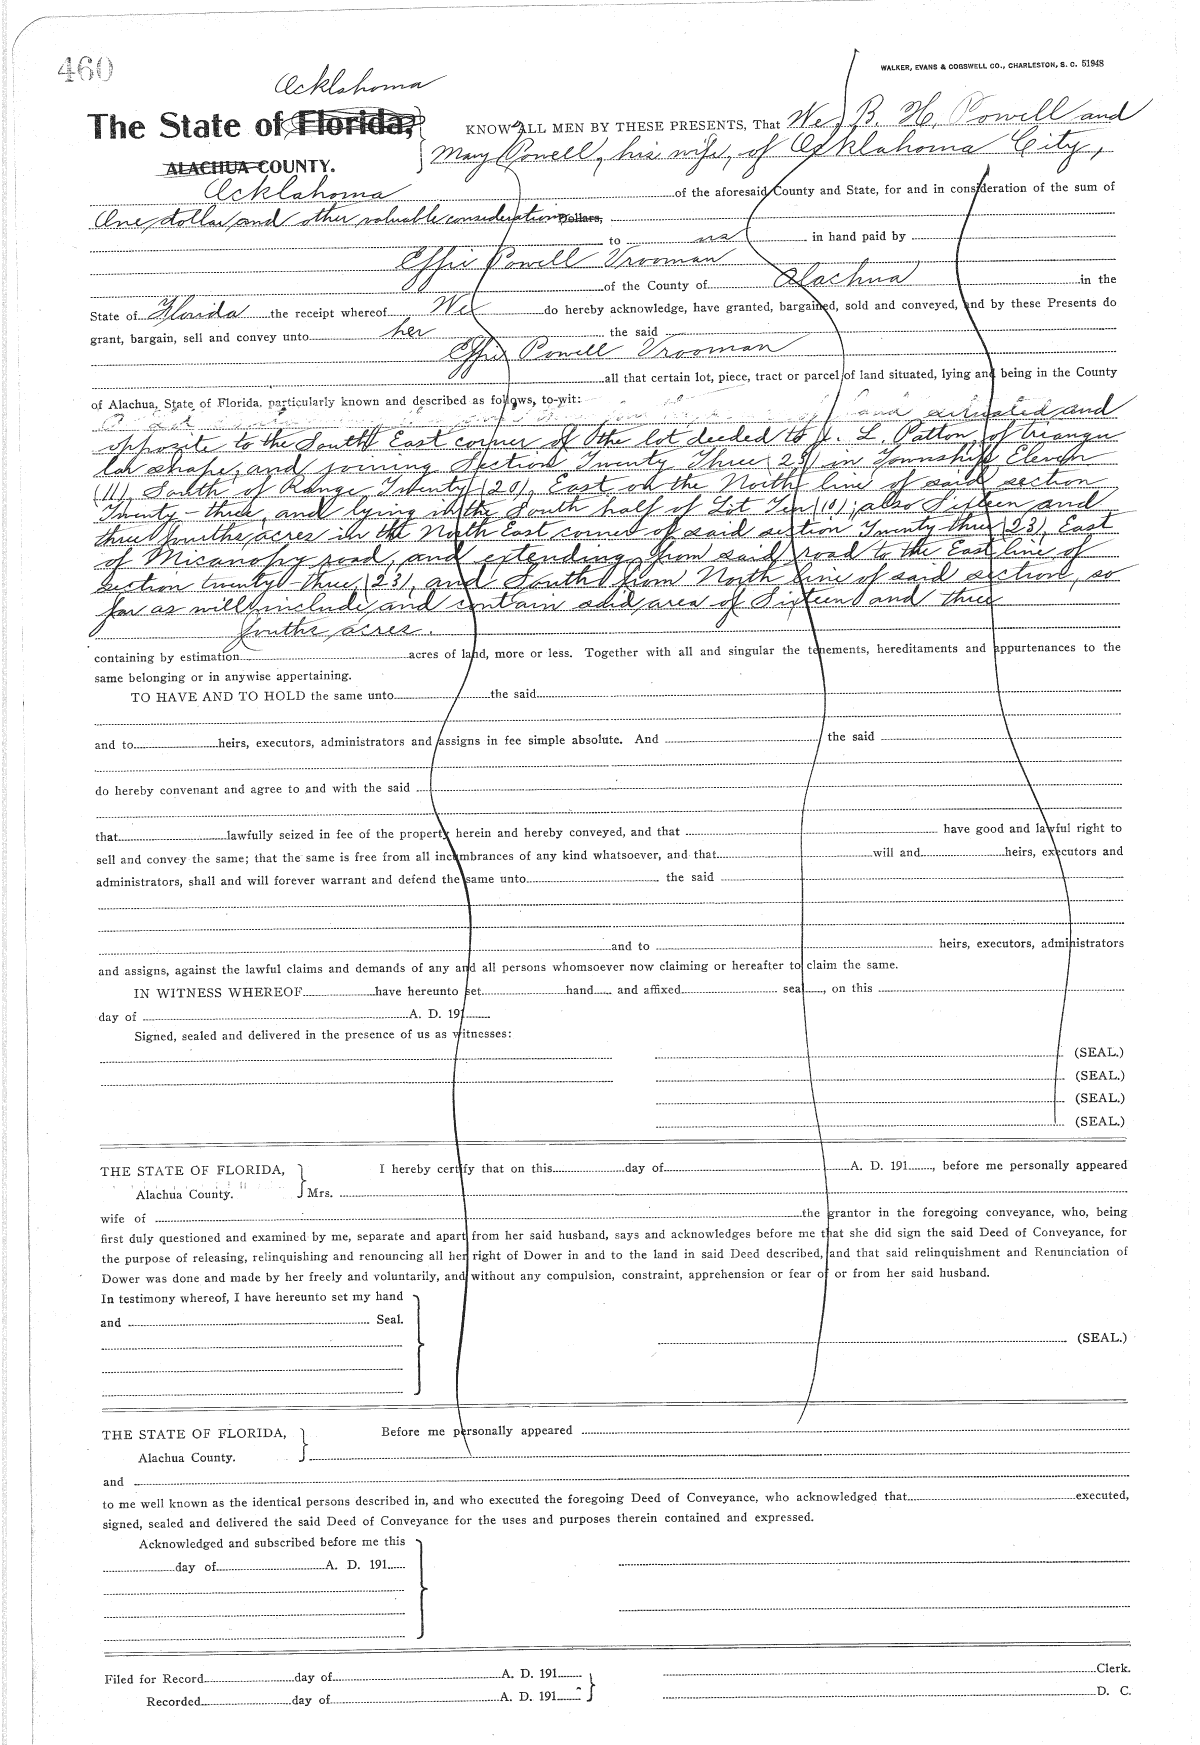 460
WALKER, EVANS & COGSWELL CO., CHARLESTON, S. C. 51948
Acklahoma
The State of Florida,
KNOW ALL MEN BY THESE PRESENTS, That We, B. H. Powell and
Mary Powell, his wife, of Acklahoma City,
ALACHUA COUNTY.
Acklahoma of the aforesaid County and State, for and in consideration of the sum of
One dollar and other valuable consideration Dollars,
to us in hand paid by
Effie Powell Vrooman
of the County of Alachua in the
State of Florida the receipt whereof We do hereby acknowledge, have granted, bargained, sold and conveyed, and by these Presents do
grant, bargain, sell and convey unto her the said
Effie Powell Vrooman
all that certain lot, piece, tract or parcel of land situated, lying and being in the County
of Alachua, State of Florida, particularly known and described as follows, to-wit:
of land situated and
opposite to the South East corner of the lot deeded to J. L. Patton, of triangu
lar shape, and joining Section Twenty Three (23) in Township Eleven
(11), South of Range Twenty (20), East on the North line of said section
Twenty-three, and lying in the South half of Lot Ten (10); also Sixteen and
three fourths acres in the North East corner of said section Twenty three (23), East
of Micanopy road, and extending from said road to the East line of
section twenty-three (23), and South from North line of said section, so
far as will include and contain said area of Sixteen and three
fouths acres.
containing by estimation acres of land, more or less. Together with all and singular the tenements, hereditaments and appurtenances to the
same belonging or in anywise appertaining.
TO HAVE AND TO HOLD the same unto the said
and to heirs, executors, administrators and assigns in fee simple absolute. And the said
do hereby convenant and agree to and with the said
that lawfully seized in fee of the property herein and hereby conveyed, and that have good and lawful right to
sell and convey the same; that the same is free from all incumbrances of any kind whatsoever, and that will and heirs, executors and
administrators, shall and will forever warrant and defend the same unto the said
and to heirs, executors, administrators
and assigns, against the lawful claims and demands of any and all persons whomsoever now claiming or hereafter to claim the same.
IN WITNESS WHEREOF have hereunto set hand and affixed seal, on this
day of A. D. 191
Signed, sealed and delivered in the presence of us as witnesses:
(SEAL.)
(SEAL.)
(SEAL.)
(SEAL.)
THE STATE OF FLORIDA, I hereby certify that on this day of A. D. 191, before me personally appeared
Alachua County. Mrs.
wife of the grantor in the foregoing conveyance, who, being
first duly questioned and examined by me, separate and apart from her said husband, says and acknowledges before me that she did sign the said Deed of Conveyance, for
the purpose of releasing, relinquishing and renouncing all her right of Dower in and to the land in said Deed described, and that said relinquishment and Renunciation of
Dower was done and made by her freely and voluntarily, and without any compulsion, constraint, apprehension or fear of or from her said husband.
In testimony whereof, I have hereunto set my hand
and Seal.
(SEAL.)
THE STATE OF FLORIDA, Before me personally appeared
Alachua County.
and
to me well known as the identical persons described in, and who executed the foregoing Deed of Conveyance, who acknowledged that executed,
signed, sealed and delivered the said Deed of Conveyance for the uses and purposes therein contained and expressed.
Acknowledged and subscribed before me this
day of A. D. 191
Filed for Record day of A. D. 191 Clerk.
Recorded day of A. D. 191 D. C.